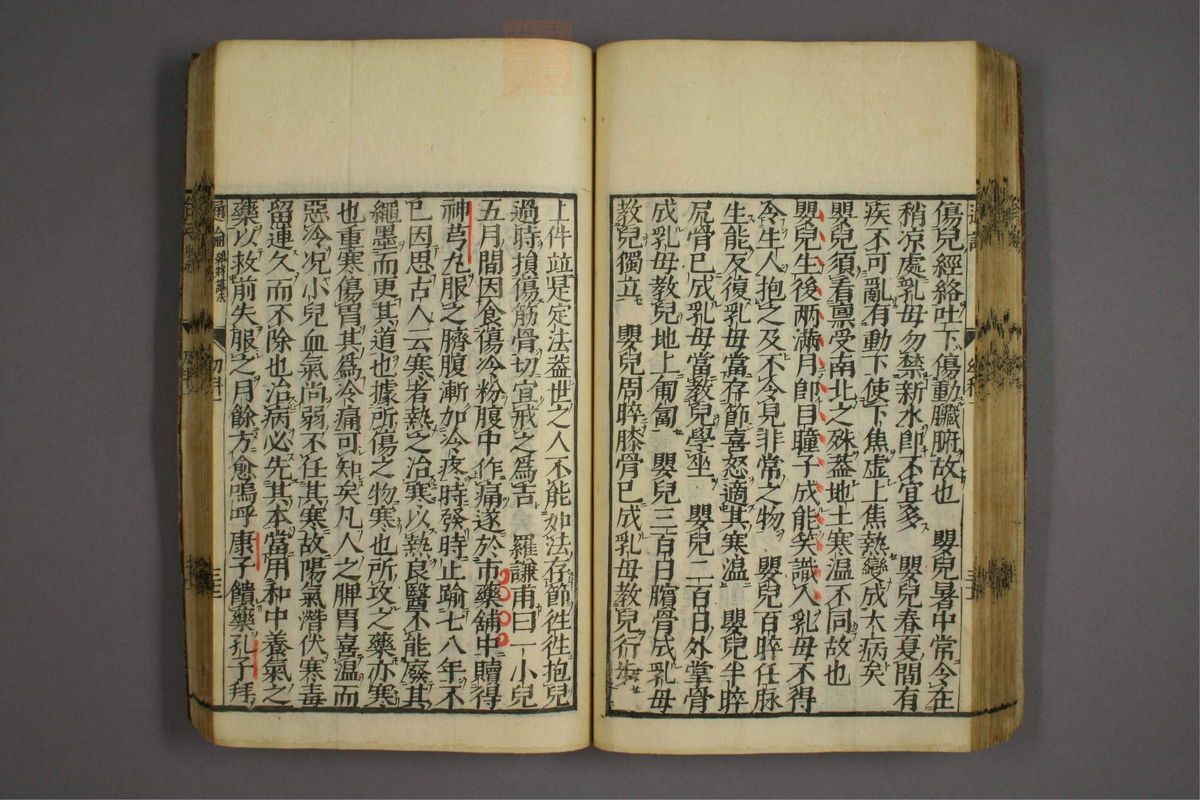 傷兒經絡吐下傷動臟腑故也　嬰兒暑中常令在
稍凉處乳母勿禁新水卽不宜多　嬰兒春夏間有
疾不可亂有動下使下焦虛上焦熱變成大病矣
嬰兒須看禀受南北之殊葢地土寒温不同故也
嬰兒生後两滿月卽目瞳子成能笑識人乳母不得
令生人抱之及不令見非常之物　嬰兒百晬任脉
生能反復乳母當存節喜怒適其寒温　嬰兒半晬
尻骨已成乳母當教兒學坐　嬰兒二百日外掌骨
成乳母教兒地上匍匐　嬰兒三百日臏骨成乳母
教兒獨立　嬰兒周晬膝骨已成乳母教兒行步
上件竝是定法葢世之人不能如法存節徃徃抱兒
過時損傷筋骨切宜戒之爲吉　羅謙甫曰一小兒
五月間因食傷冷粉腹中作痛遂於市藥舖中贖得
神芎丸服之臍腹漸加冷疼時發時止踰七八年不
已因思古人云寒者熱之治寒以熱良醫不能廢其
繩墨而更其道也據所傷之物寒也所攻之藥亦寒
也重寒傷胃其爲冷痛可知矣凡人之脾胃喜温而
惡冷况小兒血氣尚弱不任其寒故陽氣潛伏寒毒
留連久而不除也治病必先其本當用和中養氣之
藥以救前失服之月餘方愈嗚呼康子饋藥孔子拜
通論
幼科一